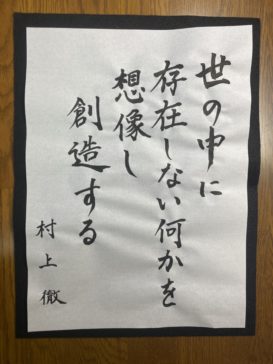 世の中に
存在しない何かを
想像し
創造する
村上徹